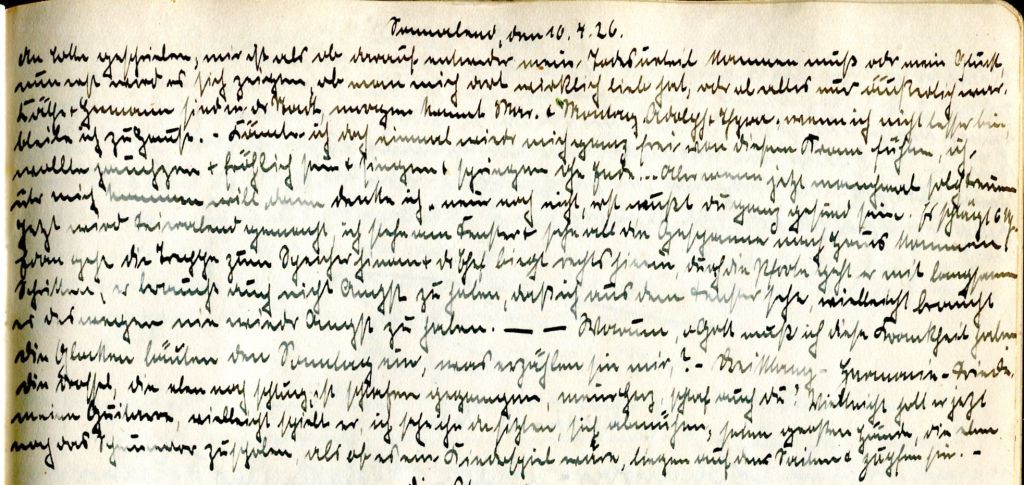 Sonnabend, den 10.4.26.
An Lotte geschrieben, mir ist als ob darauf entweder mein Todesurteil kommen muß oder mein Glück,
nun erst wird es sich zeigen, ob man mich dort wirklich lieb hat, oder ob alles nur äußerlich war.
+ Hermann sind in der Stadt, morgen kommt Mar. + Montag Adolph + Thyra, wenn ich nicht besser bin,
bleibe ich zu Hause. - Könnte ich doch einmal wieder mich ganz frei von diesem Kram fühlen, ich
wollte jauchzen + fröhlich sein + singen + springen ohne Ende... Aber wenn jetzt manchmal so
über mich kommen will, dann denke ich, nein noch nicht, erst mußt du ganz gesund sein. Es schlägt 6 Uhr.
Jetzt wird Feierabend gemacht, ich stehe am Fenster + sehe all die Gespanne nach Haus kommen,
dann geht die Treppe zum Speicher hinan + der Chef biegt rechts hinein, durch die Pforte geht er mit langsamen
Schritten, er braucht auch nicht Angst zu haben, daß ich aus dem Fenster sehe, vielleicht braucht
er deswegen nie wieder Angst zu haben. — — Warum, o Gott muß ich diese Krankheit haben
Die Glocken läuten den Sonntag ein, was erzählen sie mir? - - Harmonie - Friede,
die Drossel, die eben noch schlug, ist schlafen gegangen, mein Herz, schlaf auch du! Vielleicht holt er jetzt
meine Guitarre, vielleicht spielt er, ich sehe ihn da sitzen, sich abmühen, seine großen Hände, die eben
noch das Scheunentor zuschoben, als ob es ein Kinderspiel wäre, liegen auf den Saiten + zupfen sie. -